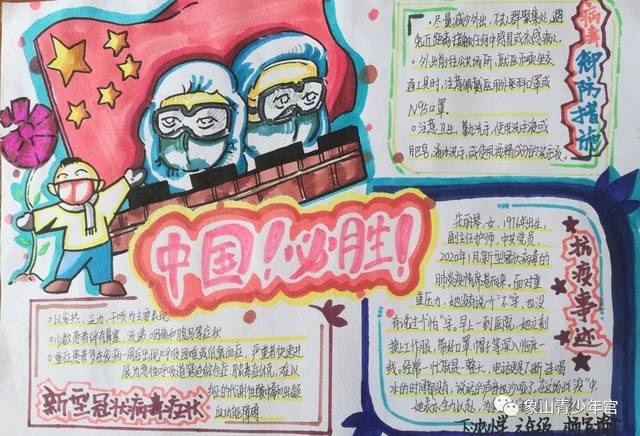 ·尽量减少外出,不去人群聚集处,避
免近距离接触任何中感冒或流感病人
·外出前往公共场所、就医和乘坐交
通工具时,注意佩戴医用外科口罩或
N95口罩。
○注意卫生,勤洗手,使用洗手液或
肥皂,流水洗手,或使用含酒精成分的洗手液。
病毒御防措施
中国!必胜!
朱丽琴,女,1976年出生,
副主任护师,中共党员,
2020年1月新型冠状病毒的
肺炎疫情席卷而来,面对重
重压力,她没有说一个"不"字,也没
有说过一个"怕"字。早上一到医院,她立刻
换上工作服,带好口罩、帽子等深入临床一
线,经常一忙就是一整天,电话更是不断,连喝
水的时间都没有,说话的声音都沙哑了,在这场战"疫"中
她表
抗疫事迹
○以发热、乏力、干咳为主要表现
○少数患者伴有鼻塞、流涕、咽痛和腹泻等症状
○重症患者多在发病一周后出现呼吸困难或低氧血症,严重者快速进
展为急性呼吸窘迫综合征、脓毒症休克、难以
纠正的代谢性酸中毒和出凝
血功能障碍
新型冠状病毒症状
象山青少年宫